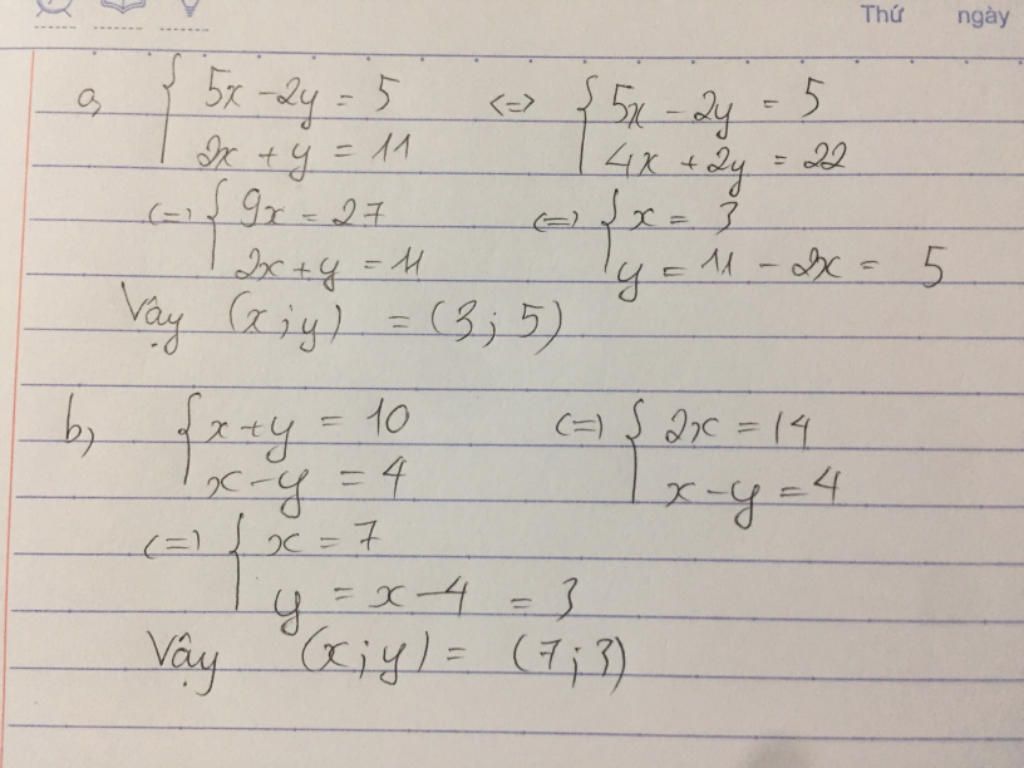 Thứ ngày
a, { 5x - 2y = 5 <=> { 5x - 2y = 5
2x + y = 11 4x + 2y = 22
<=> { 9x = 27 <=> { x = 3
2x + y = 11 y = 11 - 2x = 5
Vậy (x;y) = (3;5)
b, { x + y = 10 <=> { 2x = 14
x - y = 4 x - y = 4
<=> { x = 7
y = x - 4 = 3
Vậy (x;y) = (7;3)